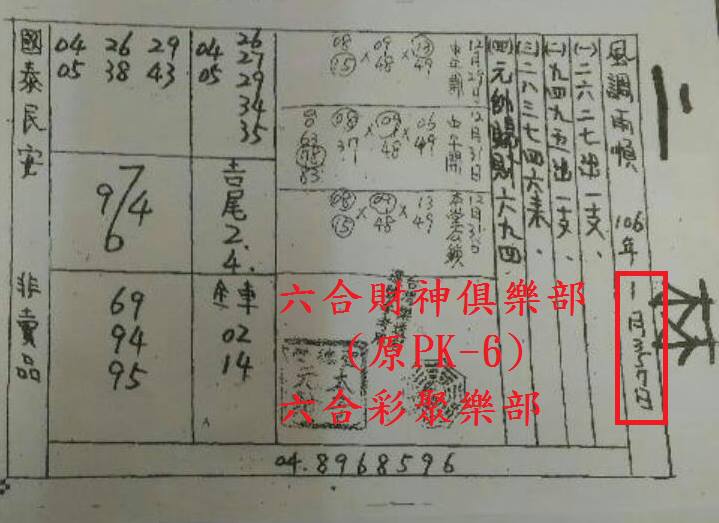 風調雨順 106年1月
(一)二六二七出一支、
(二)九四九五出一支、
(三)二八三七四六来、
(四)元帥歸財六九四
12月29日
08 × 09 × 13
15 48 49
12月31日
08 × 09 × 06
37 48 49
12月31日
08 × 09 × 13
15 48 49
26
04 27
05 29
34
35
吉尾2.4.
車
02
14
04 26 29
05 38 43
7
9/4
6
69
94
95
國泰民安 非賣品
六合財神俱樂部
(原PK-6)
六合彩聚樂部
04.8968596